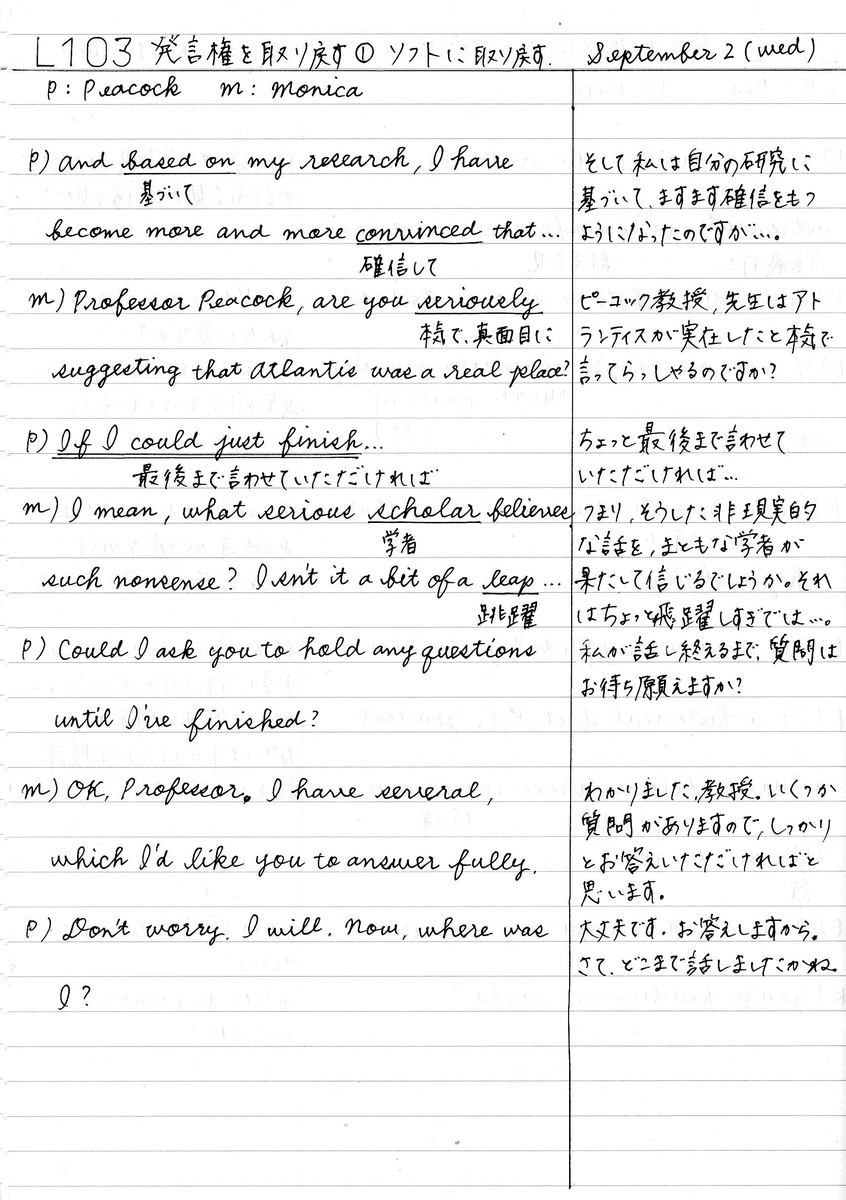 L103 発言権を取り戻す① ソフトに取り戻す. September 2 (wed)
P : Peacock M : Monica
P) And based on my research, I have
基づいて
become more and more convinced that...
確信して
M) Professor Peacock, are you seriously
本気で、真面目に
suggesting that Atlantis was a real place?
P) If I could just finish...
最後まで言わせていただければ
M) I mean, what serious scholar believes
学者
such nonsense? Isn't it a bit of a leap...
跳躍
P) Could I ask you to hold any questions
until I've finished?
M) OK, Professor. I have several,
which I'd like you to answer fully.
P) Don't worry. I will. Now, where was
I?
そして私は自分の研究に
基づいて、ますます確信をもつ
ようになったのですが…。
ピーコック教授、先生はアト
ランティスが実在したと本気で
言ってらっしゃるのですか?
ちょっと最後まで言わせて
いただければ…
つまり、そうした非現実的
な話を、まともな学者が
果たして信じるでしょうか。それ
はちょっと飛躍しすぎでは…。
私が話し終えるまで、質問は
お待ち願えますか?
わかりました、教授。いくつか
質問がありますので、しっかり
とお答えいただければと
思います。
大丈夫です。お答えしますから。
さて、どこまで話しましたかね。